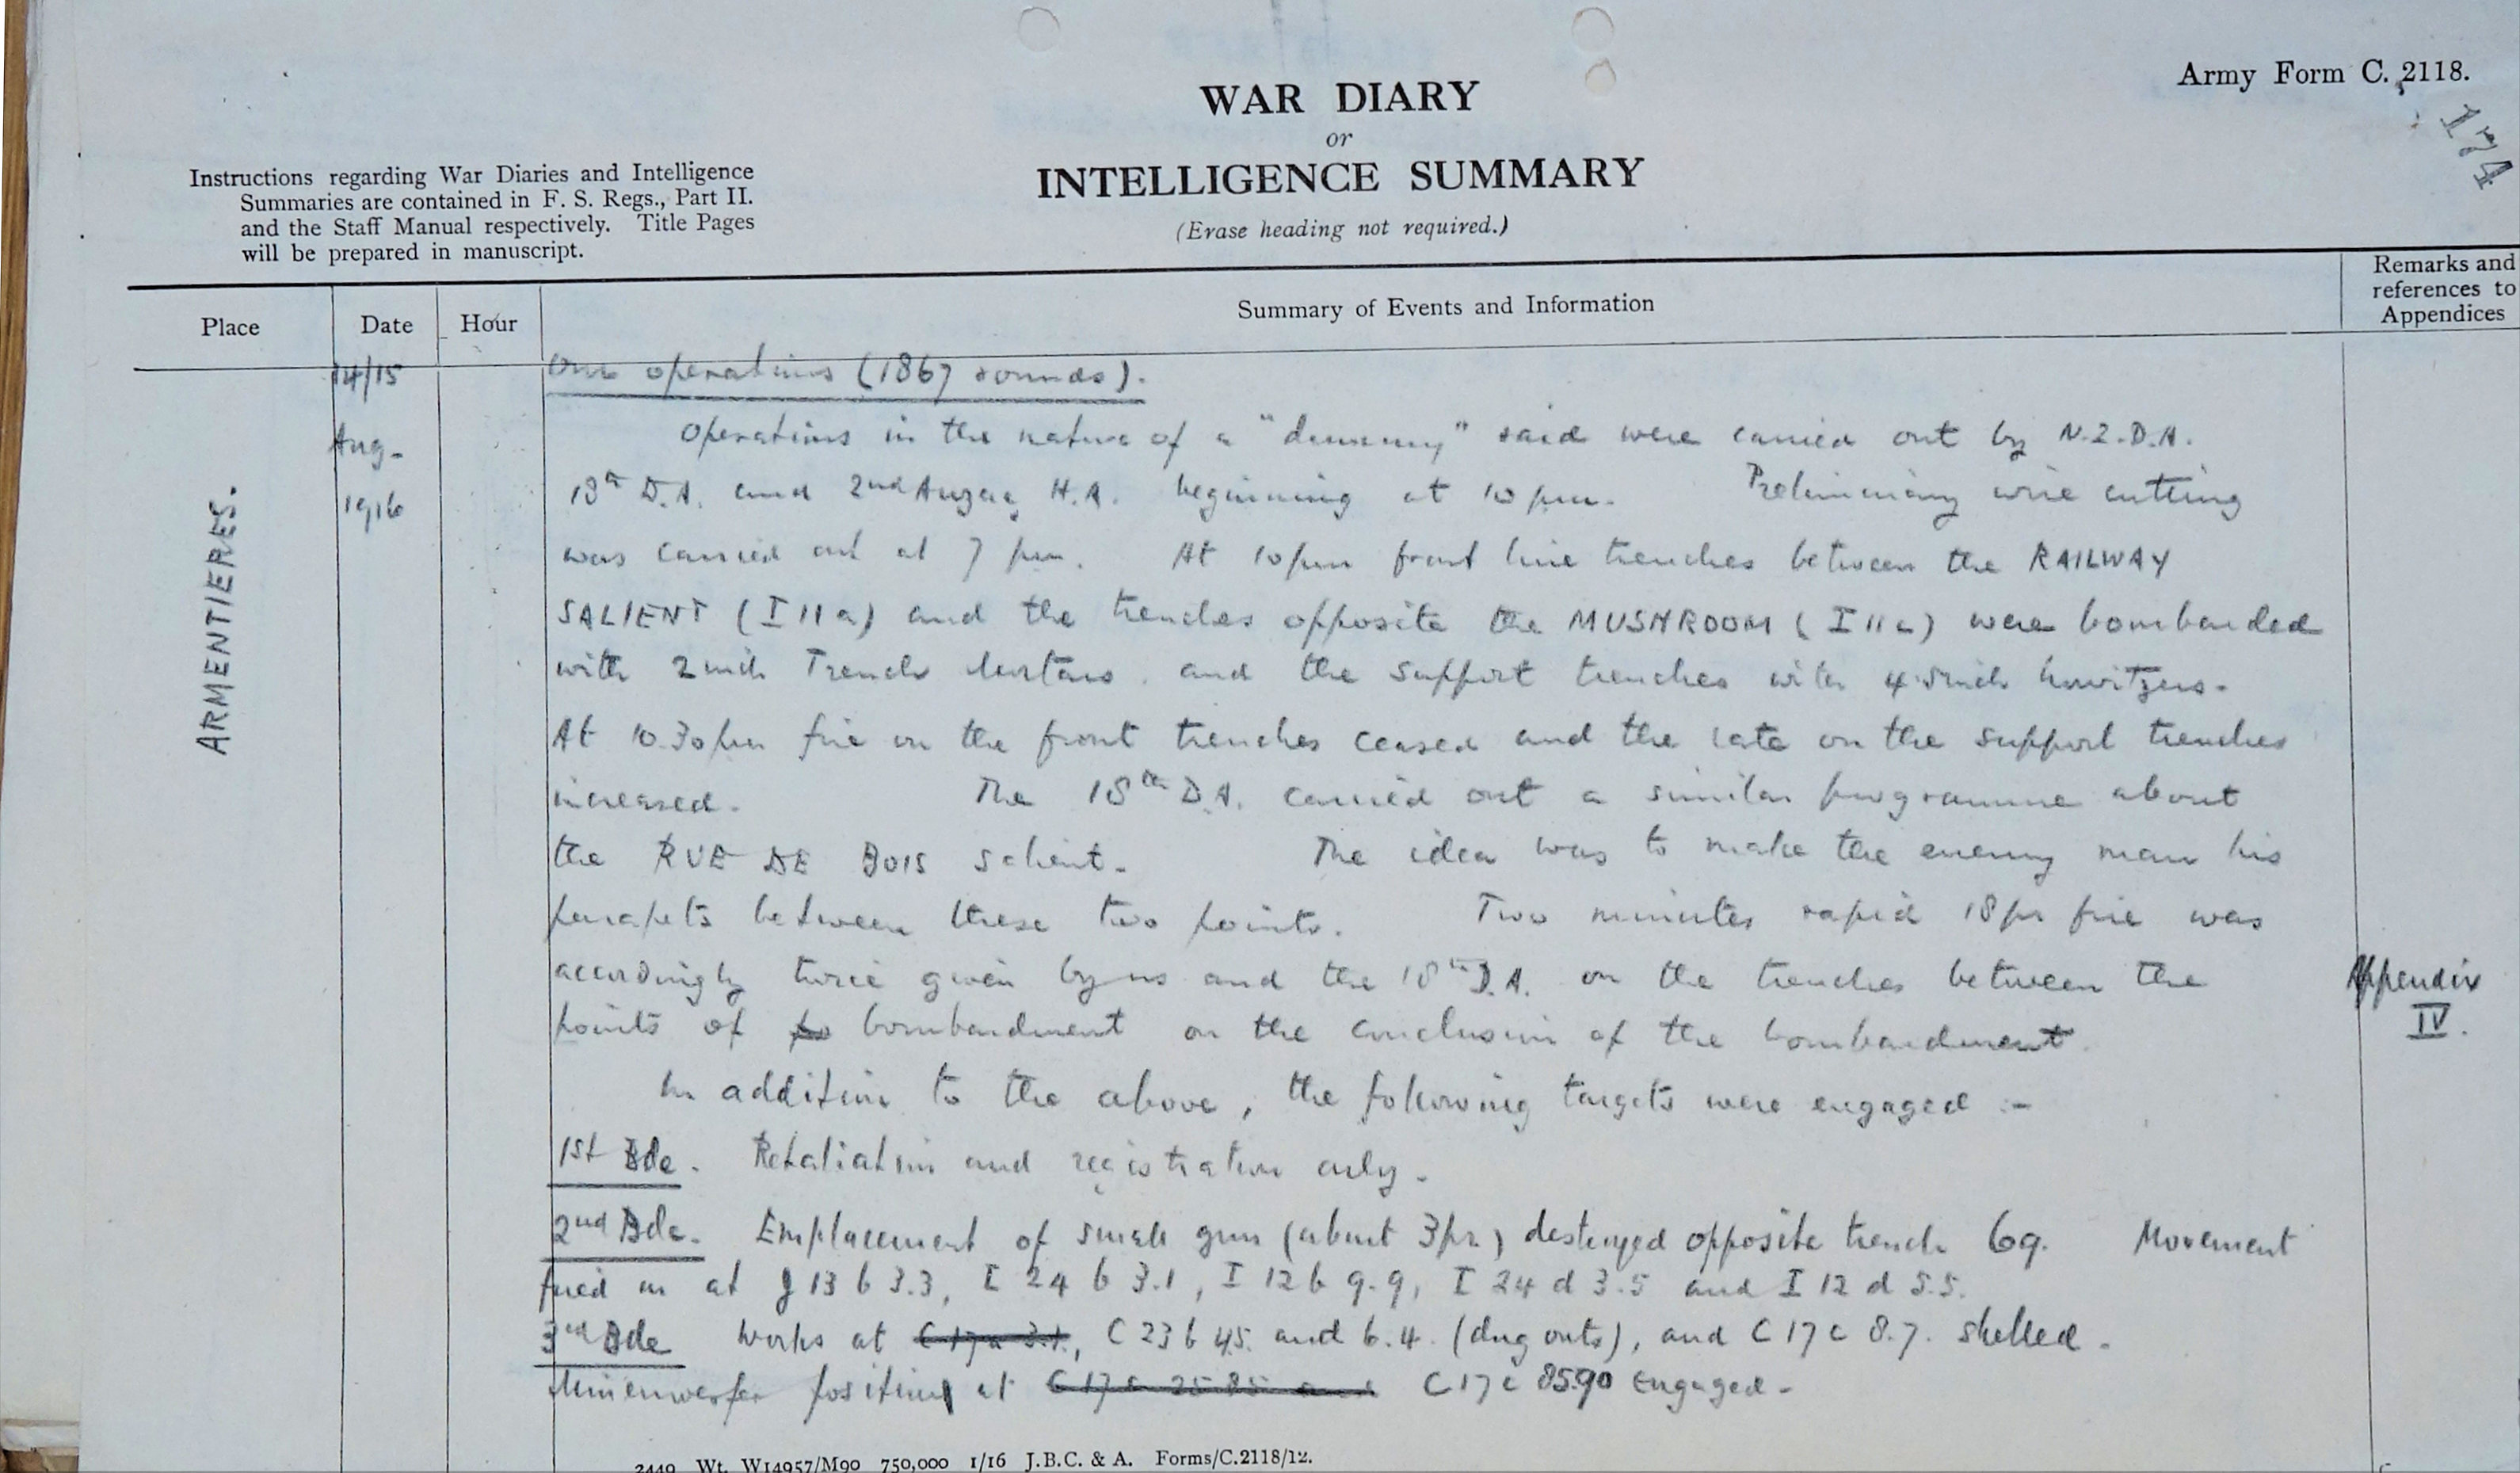 Army Form C. 2118.
174
WAR DIARY
or
INTELLIGENCE SUMMARY
(Erase heading not required.)
Instructions regarding War Diaries and Intelligence
Summaries are contained in F. S. Regs., Part II.
and the Staff Manual respectively. Title Pages
will be prepared in manuscript.
Place
Date
Hour
Summary of Events and Information
Remarks and
references to
Appendices
ARMENTIERES.
14/15
Aug-
1916
Our operations (1867 rounds).
Operations in the nature of a "dummy" raid were carried out by N.Z.D.A.
18th D.A. and 2nd Anzac H.A. beginning at 10 pm. Preliminary wire cutting
was carried out at 7 pm. At 10 pm front line trenches between the RAILWAY
SALIENT (I 11 a) and the trenches opposite the MUSHROOM (I 11 c) were bombarded
with 2 inch Trench Mortars and the support trenches with 4.5 inch howitzers.
At 10.30 pm fire on the front trenches ceased and the rate on the support trenches
increased. The 18th D.A. carried out a similar programme about
the RUE DE BOIS salient. The idea was to make the enemy man his
parapets between these two points. Two minutes rapid 18 pr fire was
accordingly twice given by us and the 18th D.A. on the trenches between the
points of bombardment on the conclusion of the bombardment.
Appendix
IV.
In addition to the above, the following targets were engaged :-
1st Bde. Retaliation and registration only.
2nd Bde. Emplacement of small gun (about 3 pr.) destroyed opposite trench 69. Movement
fired on at J 13 b 3.3, I 24 b 3.1, I 12 b 9.9, I 24 d 3.5 and I 12 d 5.5.
3rd Bde Works at C 17 a 3.1, C 23 b 45. and 6.4. (dug outs), and C 17 c 8.7. shelled.
Minenwerfer position at C 17 c 85.90 engaged.
2449 Wt. W14957/M90 750,000 1/16 J.B.C. & A. Forms/C.2118/12.